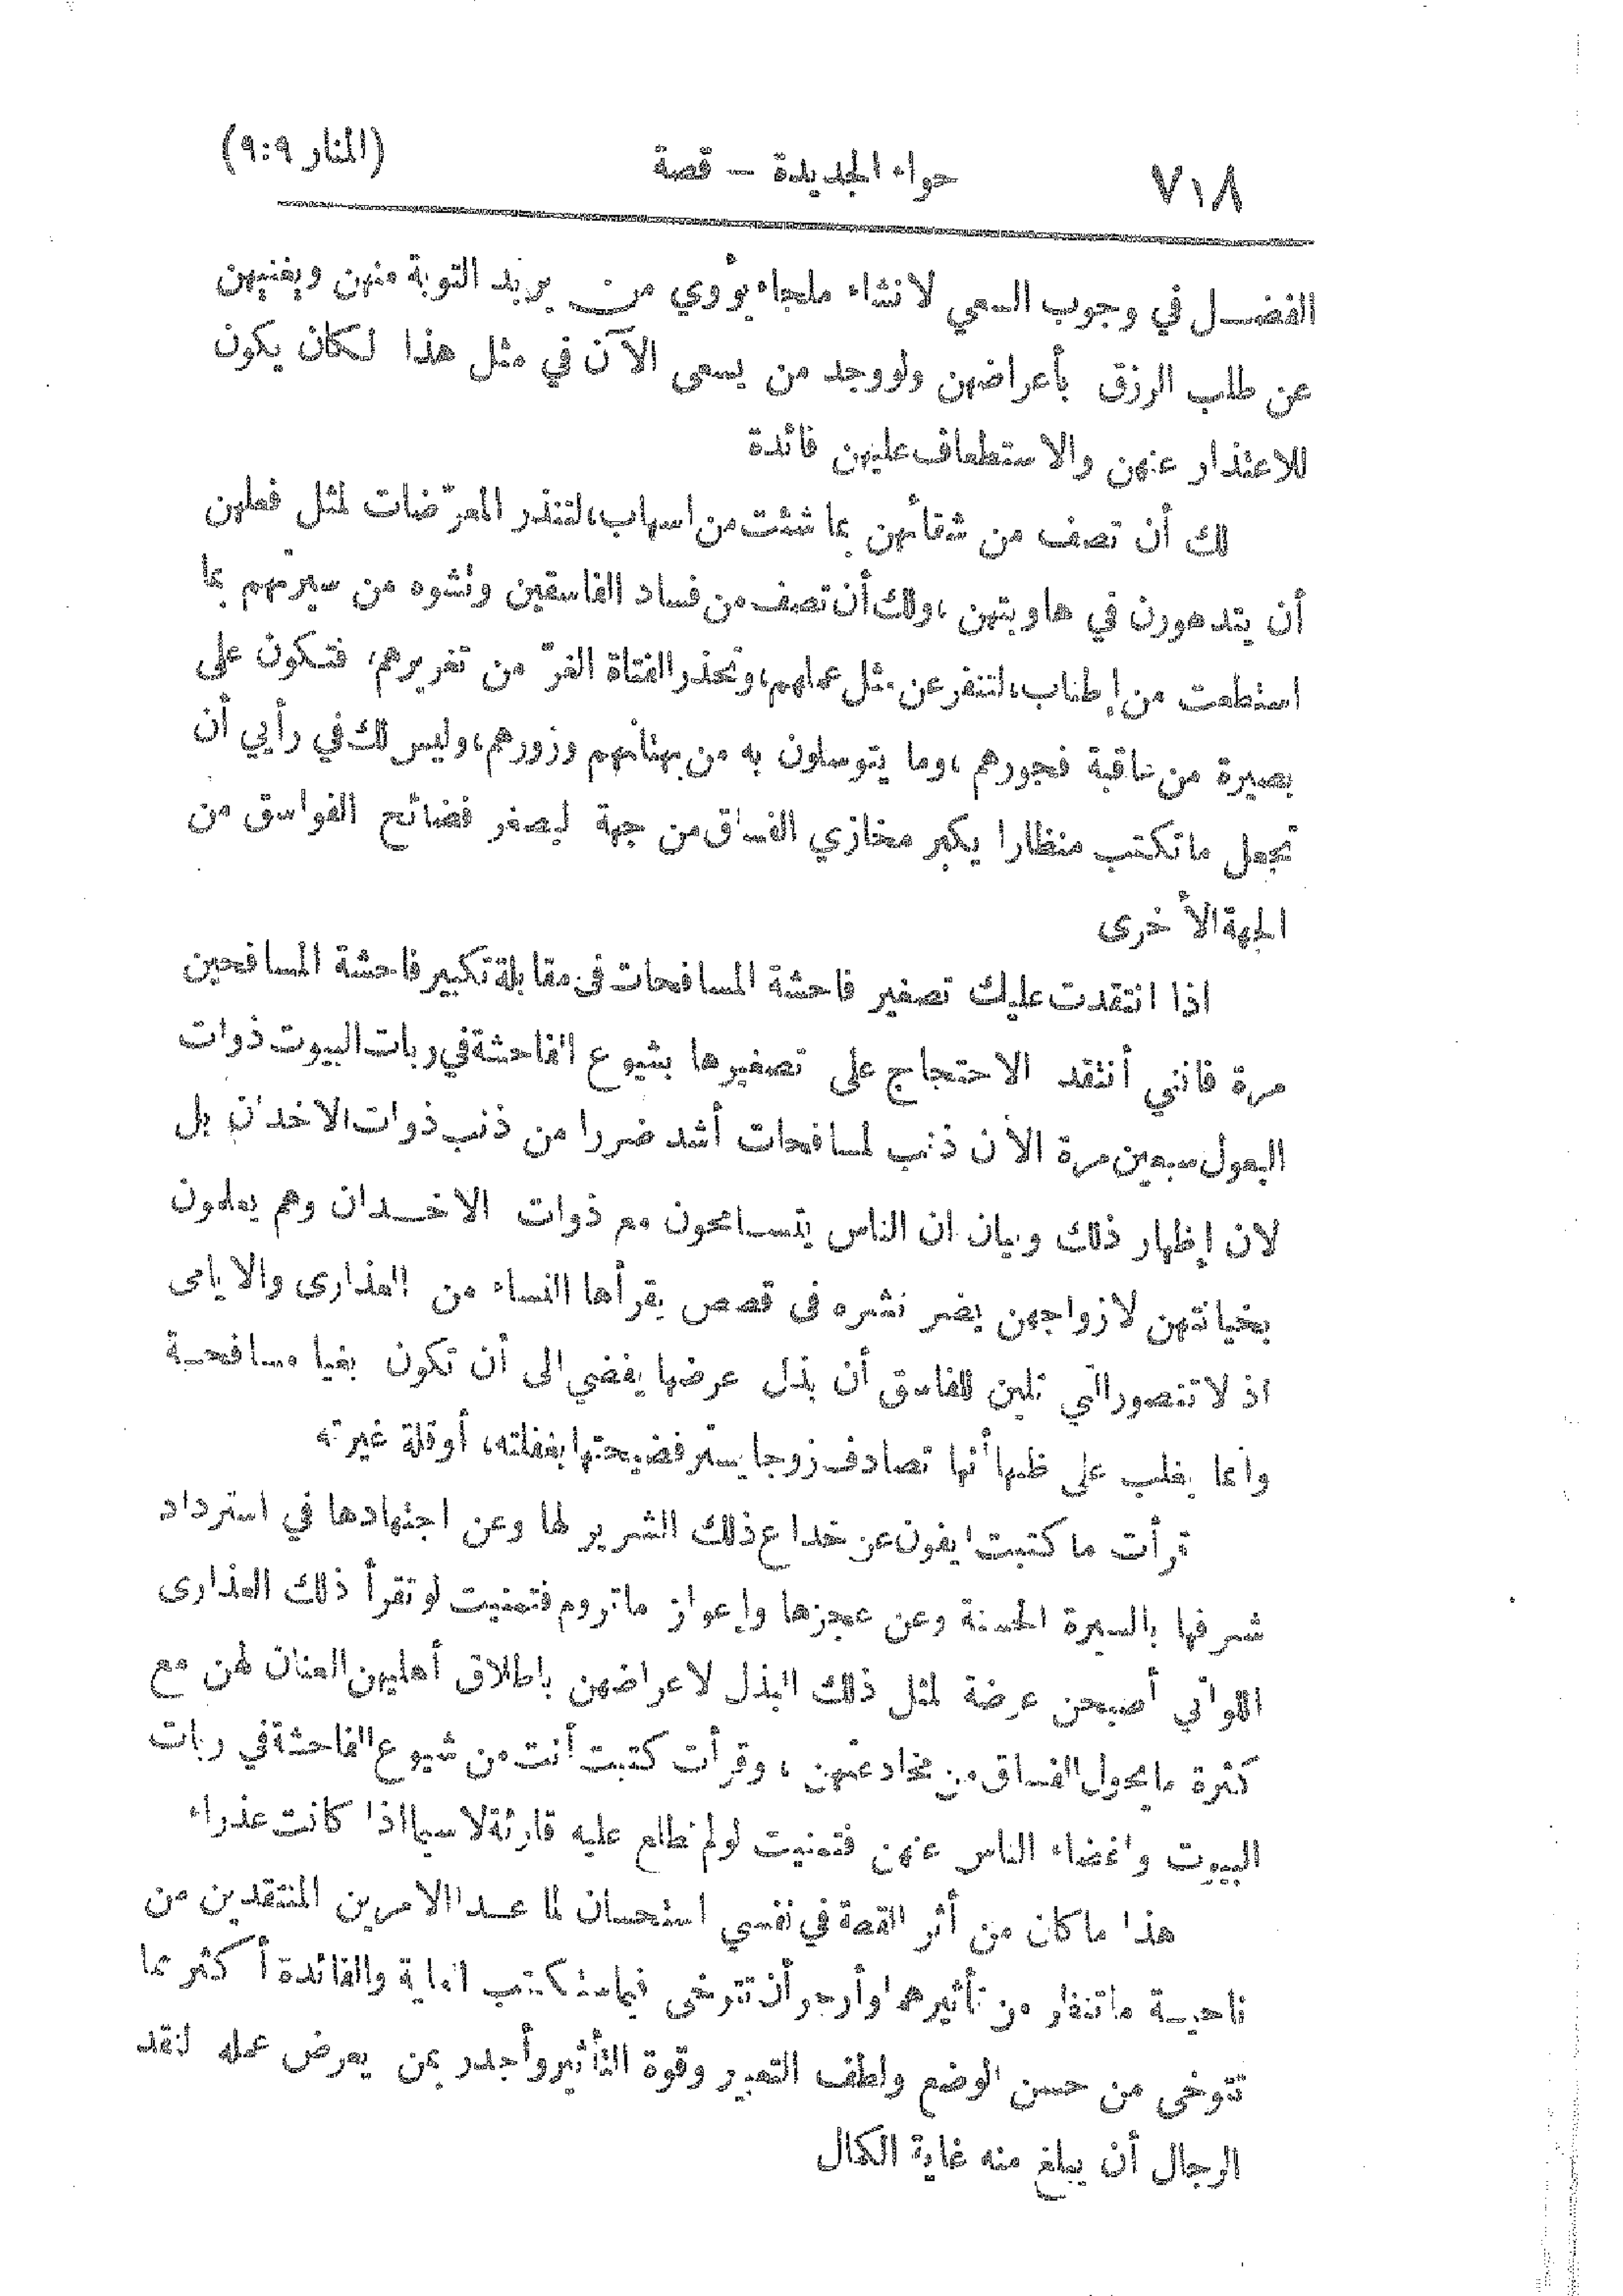 ٧١٨ حواء الجديدة – قصة (المنار ٩:٩)
الفضل في وجوب السعي لانشاء ملجاء يؤوي من يريد التوبة منهن ويغنيهن
عن طلب الرزق بأعراضهن ولو وجد من يسعى الآن في مثل هذا لكان يكون
للاعتذار عنهن والاستعطاف عليهن فائدة
لك أن تصف من شقائهن بما شئت من اسهاب، لتنذر المعرّضات لمثل فعلهن
أن يتدهورن في هاويتهن، ولك أن تصف من فساد الفاسقين وتشوه من سيرتهم بما
استطعت من إطناب، لتنفر عن مثل عملهم، وتحذر الفتاة الغرّ من تغريرهم، فتكون على
بصيرة من عاقبة فجورهم، وما يتوسلون به من بهتانهم وزورهم، وليس لك في رأيي أن
تجعل ما تكتب منظارا يكبر مخازي الفساق من جهة ليصغر فضائح الفواسق من
الجهة الأخرى
اذا انتقدت عليك تصغير فاحشة المسافحات في مقابلة تكبير فاحشة المسافحين
مرة فانني أنتقد الاحتجاج على تصغيرها بشيوع الفاحشة في ربات البيوت ذوات
البعول سبعين مرة لا لأن ذنب المسافحات أشد ضررا من ذنب ذوات الاخدان بل
لان إظهار ذلك وبيان ان الناس يتسامحون مع ذوات الاخدان وهم يعلمون
بخيانتهن لازواجهن يضر نشره في قصص يقرأها النساء من العذارى والايامى
اذ لا تتصور التي تلين للفاسق أن بذل عرضها يفضي الى أن تكون بغيا مسافحة
وانما يغلب على ظنها أنها تصادف زوجا يستر فضيحتها بغفلته، أو قلة غيرته
قرأت ما كتبت ايفون عن خداع ذلك الشرير لها وعن اجتهادها في استرداد
شرفها بالسيرة الحسنة وعن عجزها وإعواز ما تروم فتمنيت لو تقرأ ذلك العذارى
اللواتي أصبحن عرضة لمثل ذلك البذل لاعراضهن باطلاق أهليهن العنان لهن مع
كثرة ما يحول الفساق من مخادعتهن، وقرأت كتبت أنت من شيوع الفاحشة في ربات
البيوت واغضاء الناس عنهن فتمنيت لو لم تطلع عليه قارئة لا سيما اذا كانت عذراء
هذا ما كان من أثر القصة في نفسي استحسان لما عدا الامرين المنتقدين من
ناحية ما تنظر من تأثيرهما وأرجو أن تتوخى فيما ستكتب الغاية والفائدة أكثر مما
تتوخى من حسن الوضع ولطف التعبير وقوة التأثير وأجدر بمن يعرض عمله لنقد
الرجال أن يبلغ منه غاية الكمال